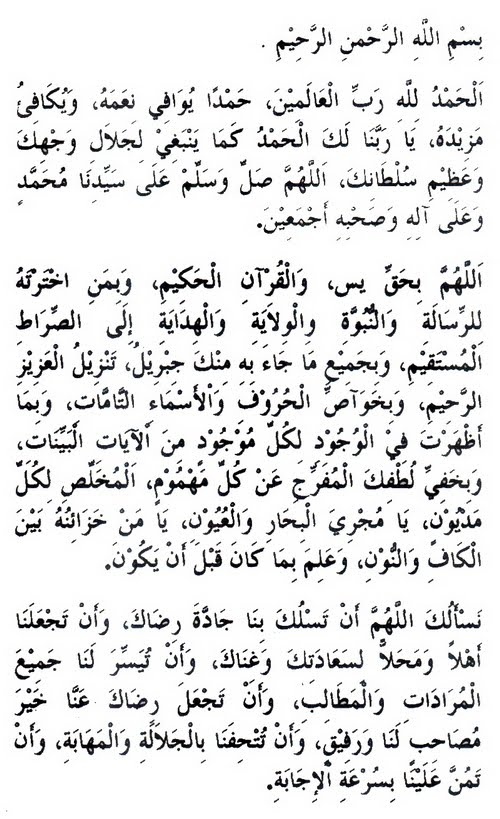 بِسْمِ اللَّهِ الرَّحْمنِ الرَّحِيْمِ .
اَلْحَمْدُ للَّهِ رَبِّ الْعَالَمِيْنَ، حَمْدًا يُوَافي نعَمَهُ، وَيُكَافئُ
مَزِيْدَهُ، يَا رَبَّنَا لَكَ الْحَمْدُ كَمَا يَنْبَغِيْ لجَلاَل وَجْهكَ
وَعَظِيْمِ سُلْطَانكَ، اَللَّهُمَّ صَلِّ وَسَلِّمْ عَلَى سَيِّدنَا مُحَمَّدٍ
وَعَلَى آلِهِ وَصَحْبِهِ أَجْمَعِيْنَ.
اَللَّهُمَّ بحَقِّ يس، وَالْقُرْآنِ الْحَكِيْمِ، وَبِمَنِ اخْتَرْتَهُ
للرِّسَالَة وَالنُّبُوَّة وَالْولاَيَة وَالْهدَايَة إلَى الصِّرَاط
الْمُسْتَقِيْمِ، وَبجَمِيْعِ مَا جَاءَ به منْكَ جبْرِيْلُ، تَنْزِيْلُ الْعَزِيْزِ
الرَّحِيْمِ، وَبخَوَآصِّ الْحُرُوْف وَاْلأَسْمَاء التَّامَّات، وَبمَا
أَظْهَرْتَ فيْ الْوُجُوْد لكُلِّ مَوْجُوْد منَ اْلآيَات الْبَيِّنَات،
وَبخَفيِّ لُطْفكَ الْمُفَرِّجِ عَنْ كُلِّ مَهْمُوْمٍ، اَلْمُخَلِّصِ لكُلِّ
مَدْيُوْن، يَا مُجْرِيَ الْبحَار وَالْعُيُوْن، يَا مَنْ خَزَائنُهُ بَيْنَ
الْكَاف وَالنُّوْن، وَعَلمَ بمَا كَانَ قَبْلَ أَنْ يَكُوْن.
نَسْأَلُكَ اللَّهُمَّ أَنْ تَسْلُكَ بنَا جَادَّةَ رِضَاكَ، وَأَنْ تَجْعَلَنَا
أَهْلاً وَمَحَلاًّ لسَعَادَتكَ وَغنَاكَ، وَأَنْ تُيَسِّرَ لَنَا جَمِيْعَ
الْمُرَادَات وَالْمَطَالبَ، وَأَنْ تَجْعَلَ رِضَاكَ عَنَّا خَيْرَ
مُصَاحب لَنَا وَرَفيْق، وَأَنْ تُتْحفَنَا بالْجَلاَلَة وَالْمَهَابَة، وَأَنْ
تَمُنَّ عَلَيْنَا بسُرْعَة اْلإجَابَة.